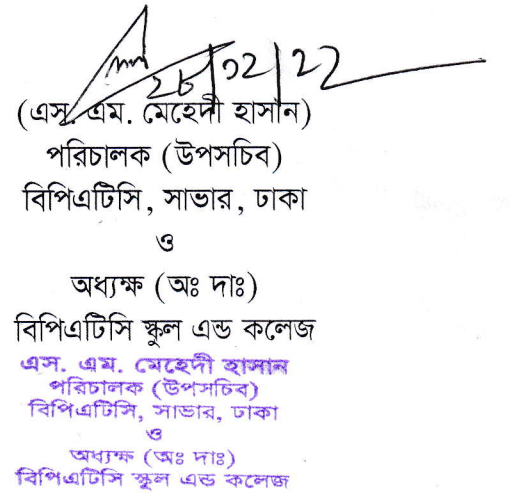 28/02/22
(এস. এম. মেহেদী হাসান)
পরিচালক (উপসচিব)
বিপিএটিসি, সাভার, ঢাকা
ও
অধ্যক্ষ (অঃ দাঃ)
বিপিএটিসি স্কুল এন্ড কলেজ
এস. এম. মেহেদী হাসান
পরিচালক (উপসচিব)
বিপিএটিসি, সাভার, ঢাকা
ও
অধ্যক্ষ (অঃ দাঃ)
বিপিএটিসি স্কুল এন্ড কলেজ